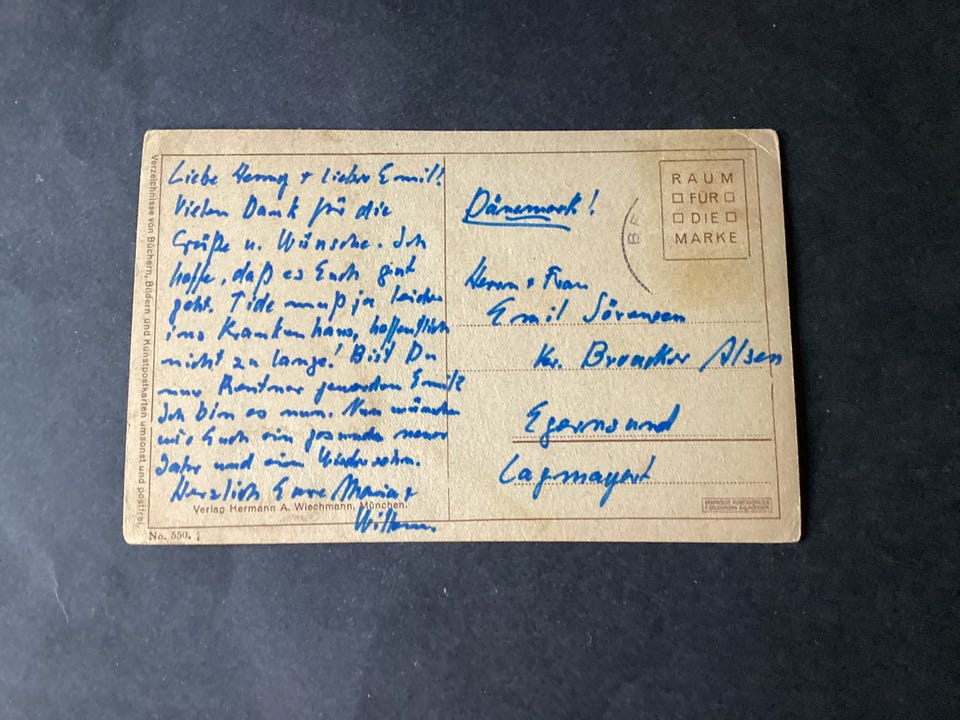 Liebe Henny + lieber Emil!
Vielen Dank für die
Grüße u. Wünsche. Ich
hoffe, daß es Euch gut
geht. Tide muß ja leider
ins Krankenhaus, hoffentlich
nicht zu lange! Bist Du
nur Rentner geworden Emil?
Ich bin es nun. Nun wünschen
wir Euch ein gesundes neues
Jahr und ein Wiedersehn.
Herzlich Eure Maria +
Wilhelm.
Dänemark!
Herrn + Frau
Emil Sörensen
Kr. Broacker Alsen
Egernsund
RAUM
FÜR
DIE
MARKE
Verzeichnisse von Büchern, Bildern und Kunstpostkarten umsonst und postfrei.
Verlag Hermann A. Wiechmann, München.
No. 550.